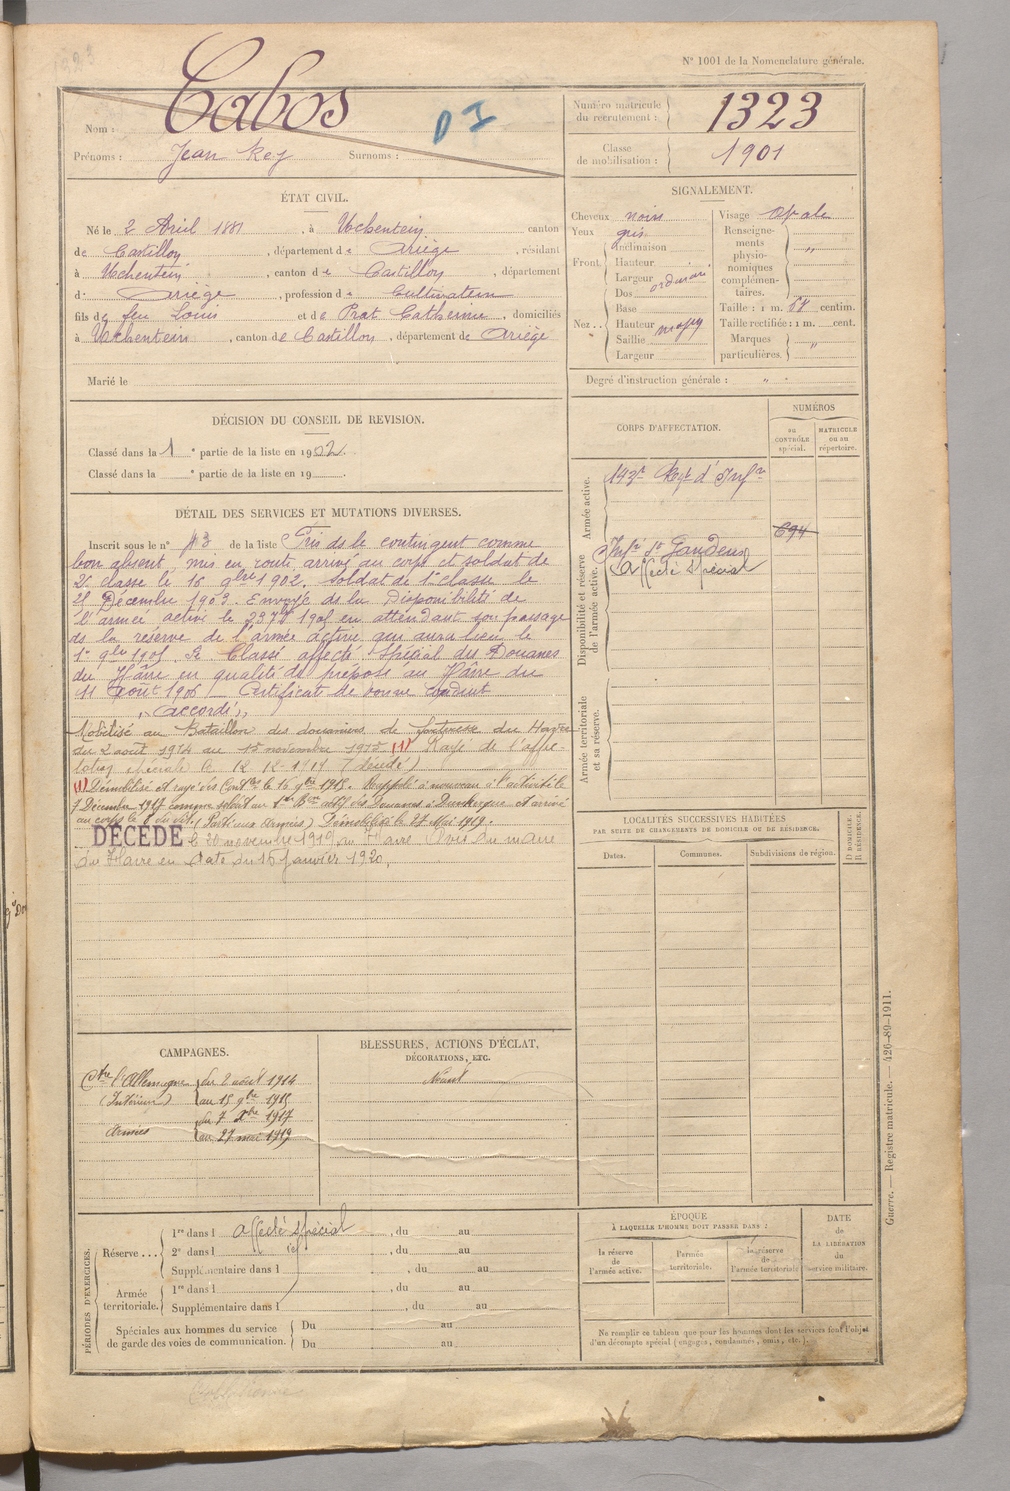 N° 1001 de la Nomenclature générale.
Nom : Cabos
D I
Prénoms : Jean Rey Surnoms :
Numéro matricule du recrutement : 1323
Classe de mobilisation : 1901
ÉTAT CIVIL.
Né le 2 Avril 1881, à Uchentein canton
de Castillon, département de Ariège, résidant
à Uchentein, canton de Castillon, département
d. Ariège, profession de Cultivateur
fils de feu Louis et de Prat Catherine, domiciliés
à Uchentein, canton de Castillon, département de Ariège
Marié le
SIGNALEMENT.
Cheveux noirs
Yeux gris
Front Inclinaison
Hauteur
Largeur ordinaire
Nez .. Dos
Base
Hauteur moyen
Saillie
Largeur
Visage ovale
Renseignements physionomiques complémentaires. "
Taille : 1 m. 57 centim.
Taille rectifiée : 1 m. cent.
Marques particulières. "
Degré d'instruction générale : "
DÉCISION DU CONSEIL DE REVISION.
Classé dans la 1 e partie de la liste en 1902.
Classé dans la e partie de la liste en 19
DÉTAIL DES SERVICES ET MUTATIONS DIVERSES.
Inscrit sous le n° 43 de la liste Pris ds le contingent comme
bon absent, mis en route, arrivé au corps et soldat de
2e classe le 16 9bre 1902. Soldat de 1e classe le
21 Décembre 1903. Envoyé ds la Disponibilité de
l'armée active le 23 7bre 1905 en attendant son passage
ds la réserve de l'armée active qui aura lieu le
1er 9bre 1905. Classé affecté spécial des Douanes
du Hâvre en qualité de préposé au Hâvre du
11 Août 1906 _ Certificat de bonne conduite
"Accordé"
Mobilisé au Bataillon des douaniers de forteresse du Havre
du 2 août 1914 au 15 novembre 1915 (1) Rayé de l'affec-
tation spéciale le 12-12-1919 (décédé)
(1) Démobilisé et rayé des Contles le 16 9bre 1915. Rappelé à nouveau à l'activité le
7 Décembre 1917 comme soldat au 1er Bon actif des Douanes à Dunkerque et arrivé
au corps le 8 du dit. (Parti aux Armées) Démobilisé le 27 Mai 1919.
DÉCÉDÉ le 20 novembre 1919 au Havre Avis du maire
du Havre en date du 16 Janvier 1920.
CORPS D'AFFECTATION.
NUMÉROS
au CONTRÔLE spécial.
MATRICULE ou au répertoire.
Armée active.
143e Regt d'Infie
694
Disponibilité et réserve de l'armée active.
Infie St Gaudens
Affecté spécial
Armée territoriale et sa réserve.
LOCALITÉS SUCCESSIVES HABITÉES
PAR SUITE DE CHANGEMENTS DE DOMICILE OU DE RÉSIDENCE.
Dates. Communes. Subdivisions de région. D. DOMICILE. R. RÉSIDENCE.
CAMPAGNES.
Ctre l'Allemagne du 2 août 1914
(Intérieur) au 15 9bre 1915
Armées du 7 Xbre 1917
au 27 mai 1919
BLESSURES, ACTIONS D'ÉCLAT,
DÉCORATIONS, ETC.
Néant
PÉRIODES D'EXERCICES.
Réserve... 1re dans l affecté spécial, du au
2e dans l, du au
Supplémentaire dans l, du au
Armée territoriale. 1re dans l, du au
Supplémentaire dans l, du au
Spéciales aux hommes du service de garde des voies de communication. Du au
Du au
ÉPOQUE
À LAQUELLE L'HOMME DOIT PASSER DANS :
la réserve de l'armée active.
l'armée territoriale.
la réserve de l'armée territoriale
DATE de LA LIBÉRATION du service militaire.
Ne remplir ce tableau que pour les hommes dont les services font l'objet
d'un décompte spécial (engagés, condamnés, omis, etc.).
Guerre. — Registre matricule. — 426-89-1911.